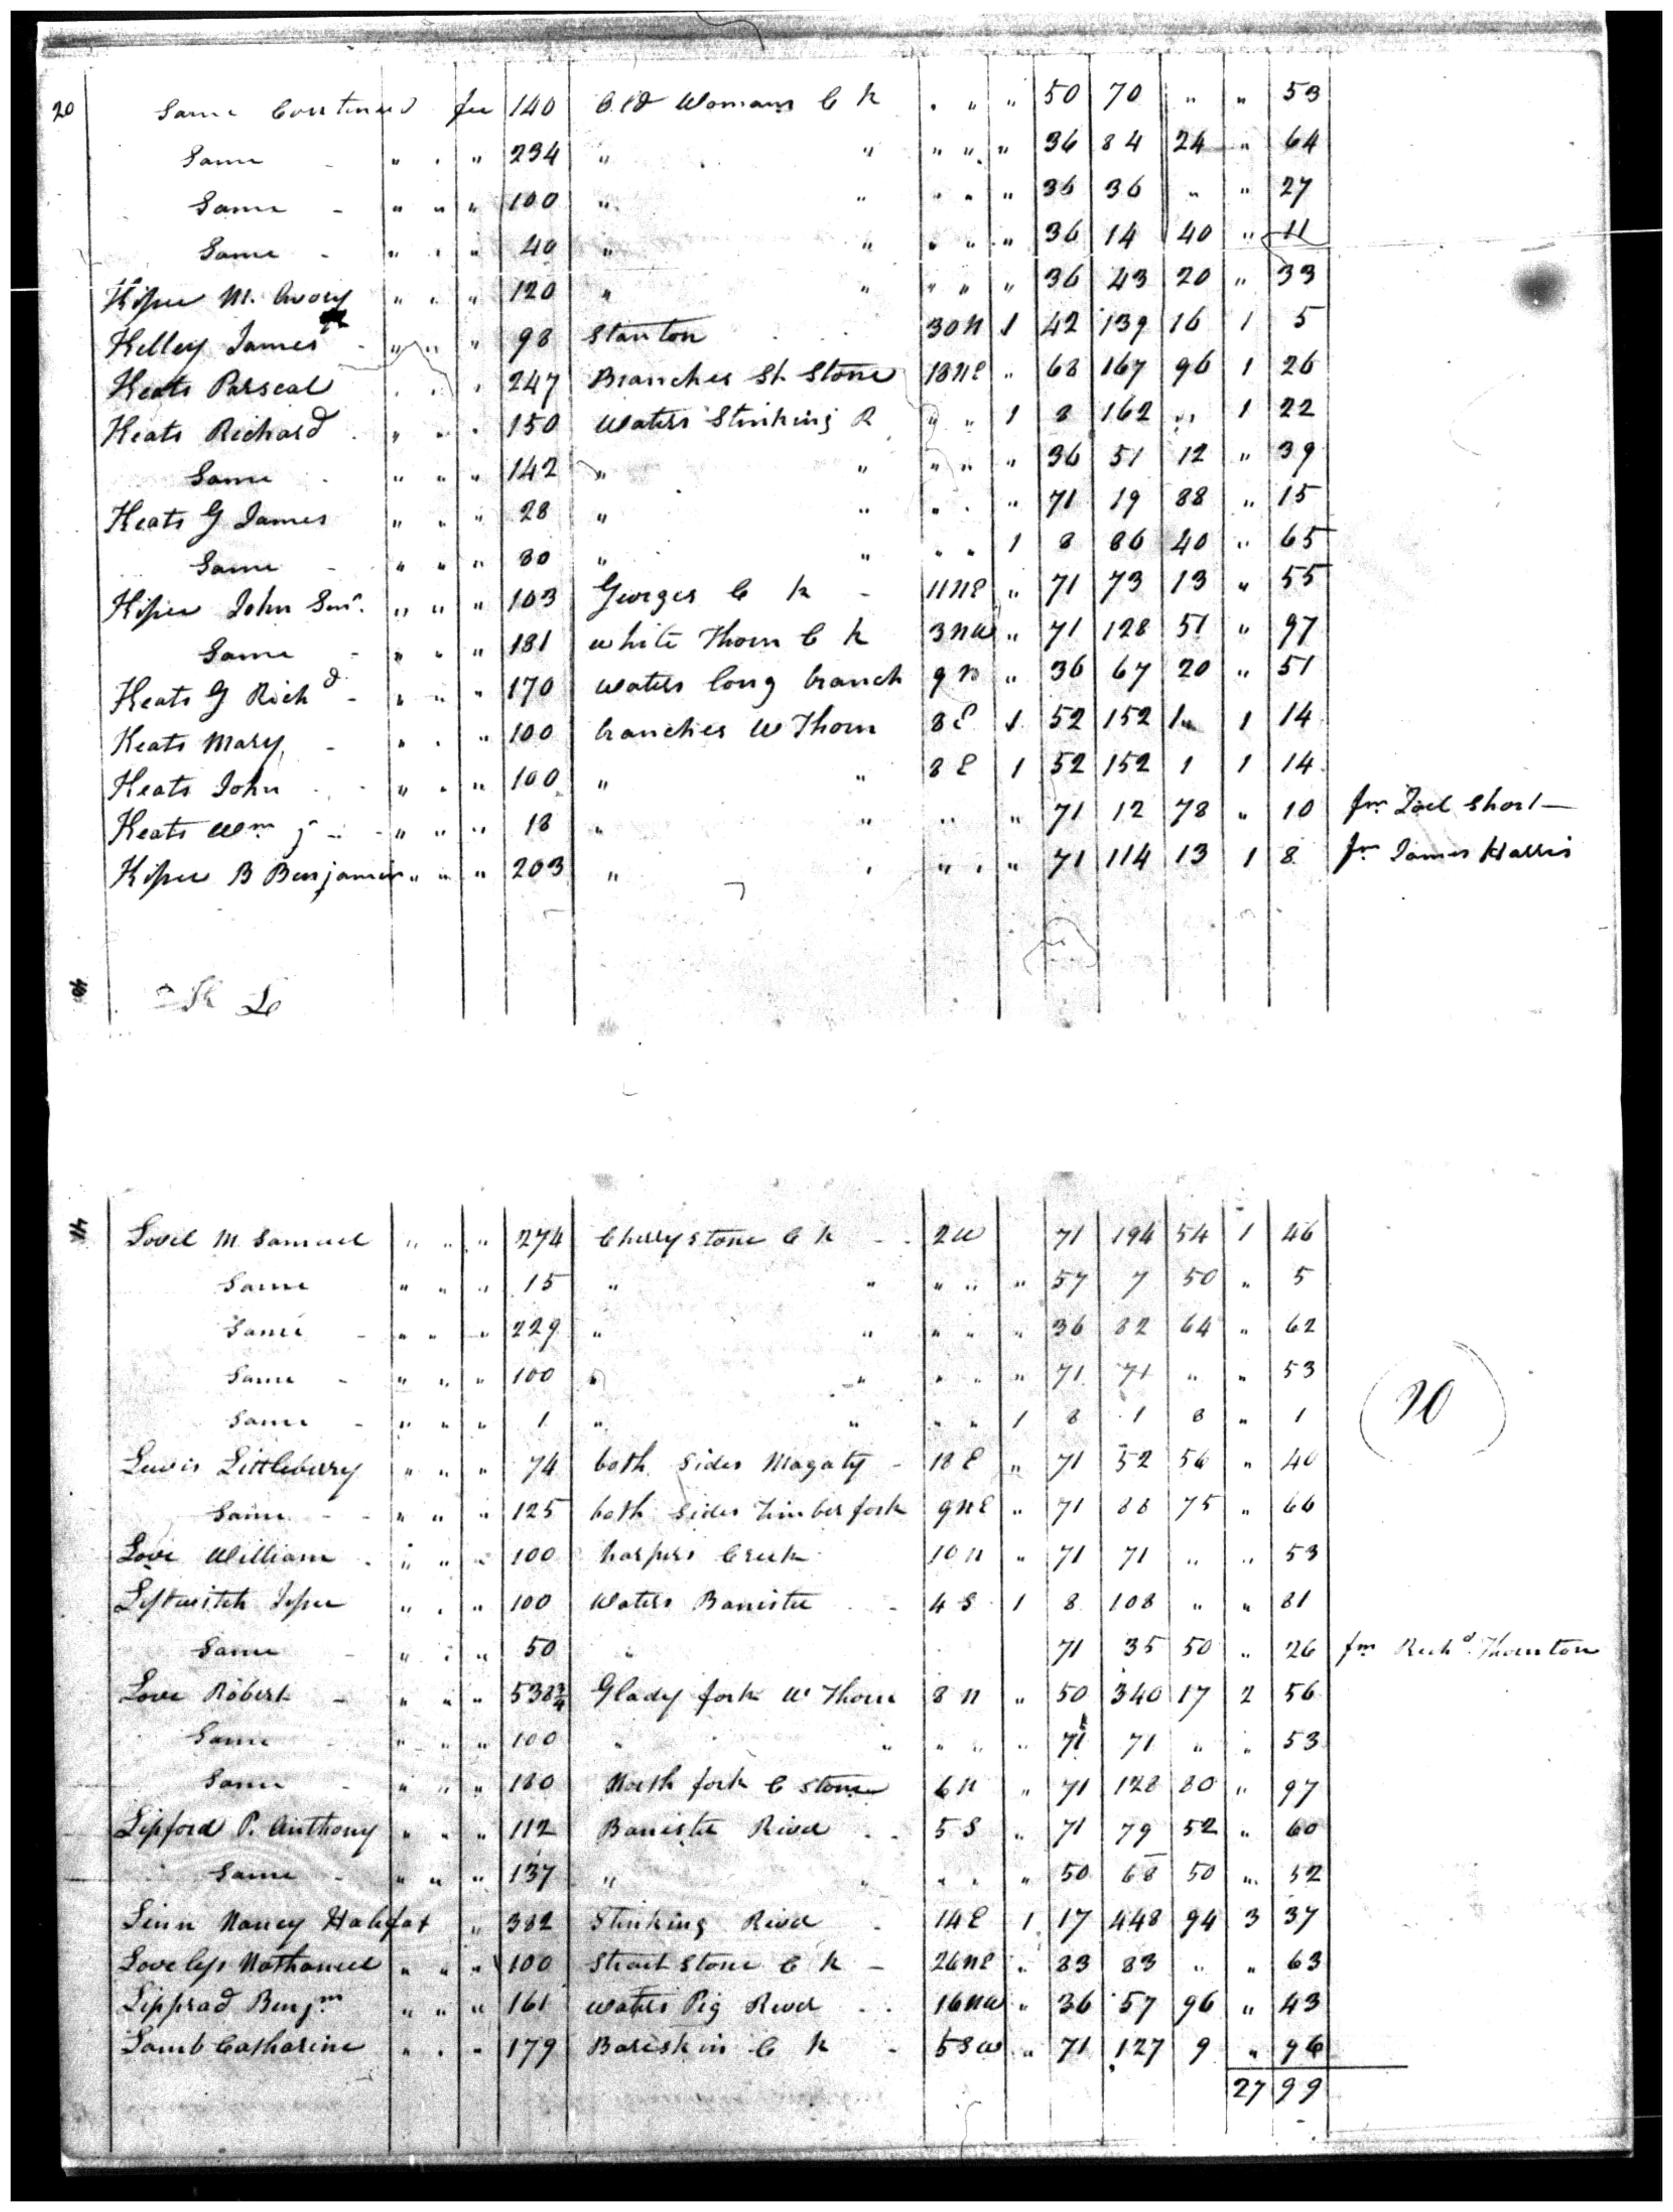 20 Same Continued fee 140 Old Womans C k " " " 50 70 " " 53
Same - " " " 234 " " " " " 36 84 24 " 64
Same - " " " 100 " " " " " 36 36 " " 27
Same - " " " 40 " " " " " 36 14 40 " 11
M. Avory " " " 120 " " " " " 36 43 20 " 33
Kelley James - " " " 98 Stanton 30 N 1 42 139 16 1 5
Keats Parseal " " " 247 Branches St. Stone 18 NE " 68 167 96 1 26
Keats Richard " " " 150 Waters Stinking R " " 1 8 162 " 1 22
Same " " " 142 " " " " " 36 51 12 " 39
Keats G James " " " 28 " " " " " 71 19 88 " 15
Same - " " " 80 " " " " 1 8 86 40 " 65
John Senr. " " " 103 Georges C k - 11 NE " 71 73 13 " 55
Same - " " " 181 White Thorn C k 3 NW " 71 128 51 " 97
Keats G Richd - " " " 170 Waters long branch 9 N " 36 67 20 " 51
Keats Mary - " " " 100 branches W Thorn 8 E 1 52 152 " 1 14
Keats John " " " 100 " " 8 E 1 52 152 1 1 14
Keats Wm j - " " " 18 " " " " 71 12 78 " 10 fm Joel Short
B Benjamin " " " 203 " " " " " 71 114 13 1 8 fm James
Lovel M. Samuel " " " 274 Cherrystone C k - 2 W 71 194 54 1 46
Same " " " 15 " " " " " 57 7 50 " 5
Same - " " " 229 " " " " " 36 82 64 " 62
Same - " " " 100 " " " " " 71 71 " " 53
Same - " " " 1 " " " " 1 8 1 8 " 1
20
Lewis Littleberry " " " 74 both Sides Magaty - 18 E " 71 52 56 " 40
Same - " " " 125 both Sides Timber fork 9 NE " 71 88 75 " 66
Love William " " " 100 harpers Creek 10 N " 71 71 " " 53
Leftwitch " " " 100 Waters Banister - 4 S 1 8 108 " " 81
Same - " " " 50 " 71 35 50 " 26 fm Richd. Thornton
Love Robert - " " " 538¾ Glady fork W Thorn 8 N " 50 340 17 2 56
Same " " " 100 " " " " " 71 71 " " 53
Same - " " " 180 North fork C stone 6 N " 71 128 80 " 97
Lipford P. Anthony " " " 112 Banister River - - 5 S " 71 79 52 " 60
Same - " " " 137 " " " " " 50 68 50 " 52
Linn Nancy Halifax " 382 Stinking River 14 E 1 17 448 94 3 37
Nathaniel " " " 100 Strait Stone C k - 26 NE " 83 83 " " 63
Benjm " " " 161 Waters Pig River - - 16 NW " 36 57 96 " 43
Lamb Catharine " " " 179 Bareskin C k - 5 SW " 71 127 9 " 96
27 99